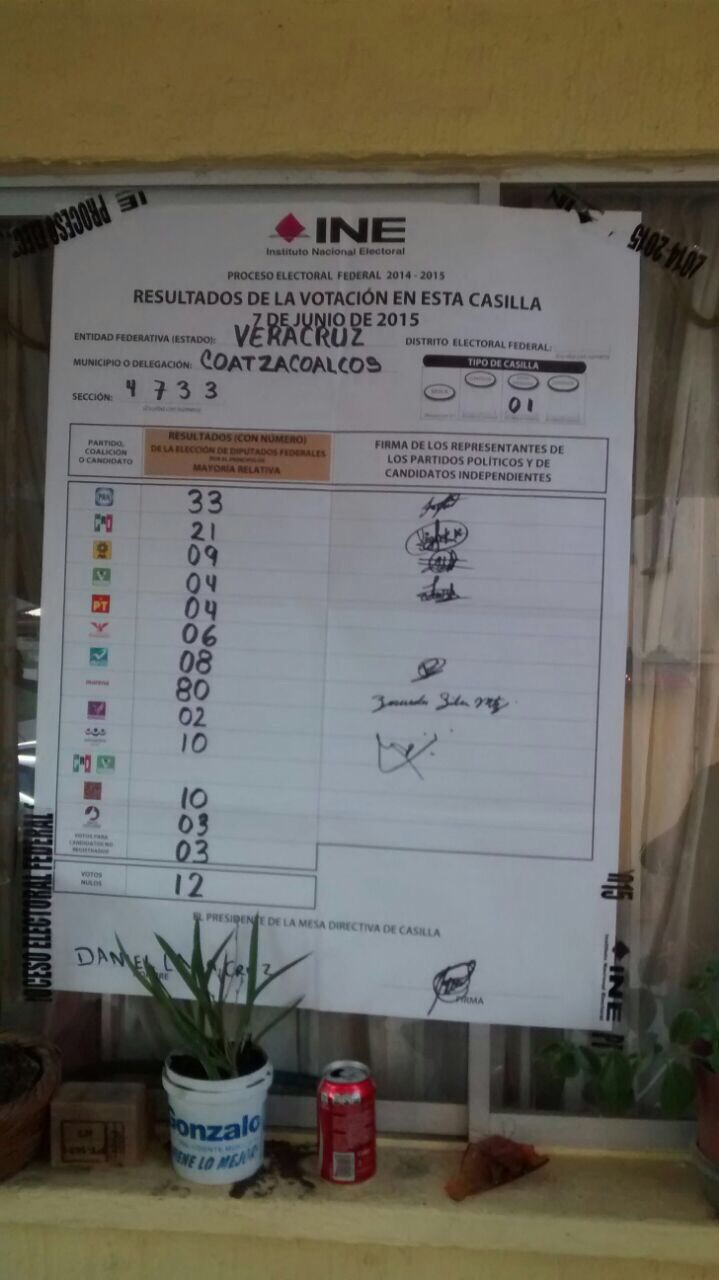 PROCESO ELEC
INE
2014-2015
INE
Instituto Nacional Electoral
PROCESO ELECTORAL FEDERAL 2014 - 2015
RESULTADOS DE LA VOTACIÓN EN ESTA CASILLA
7 DE JUNIO DE 2015
ENTIDAD FEDERATIVA (ESTADO): VERACRUZ DISTRITO ELECTORAL FEDERAL:
MUNICIPIO O DELEGACIÓN: COATZACOALCOS
TIPO DE CASILLA
SECCIÓN: 4 7 3 3
01
PARTIDO, COALICIÓN O CANDIDATO
RESULTADOS (CON NÚMERO)
DE LA ELECCIÓN DE DIPUTADOS FEDERALES
POR EL PRINCIPIO DE
MAYORÍA RELATIVA
FIRMA DE LOS REPRESENTANTES DE
LOS PARTIDOS POLÍTICOS Y DE
CANDIDATOS INDEPENDIENTES
PAN 33
PRI 21
09
04
PT 04
06
08
morena 80
02
10
PRI
10
03
VOTOS PARA CANDIDATOS NO REGISTRADOS 03
VOTOS NULOS 12
EL PRESIDENTE DE LA MESA DIRECTIVA DE CASILLA
DANIEL CRUZ
FIRMA
OCESO ELECTORAL FEDERAL
015
INE
Gonzalo
TIENE LO MEJOR